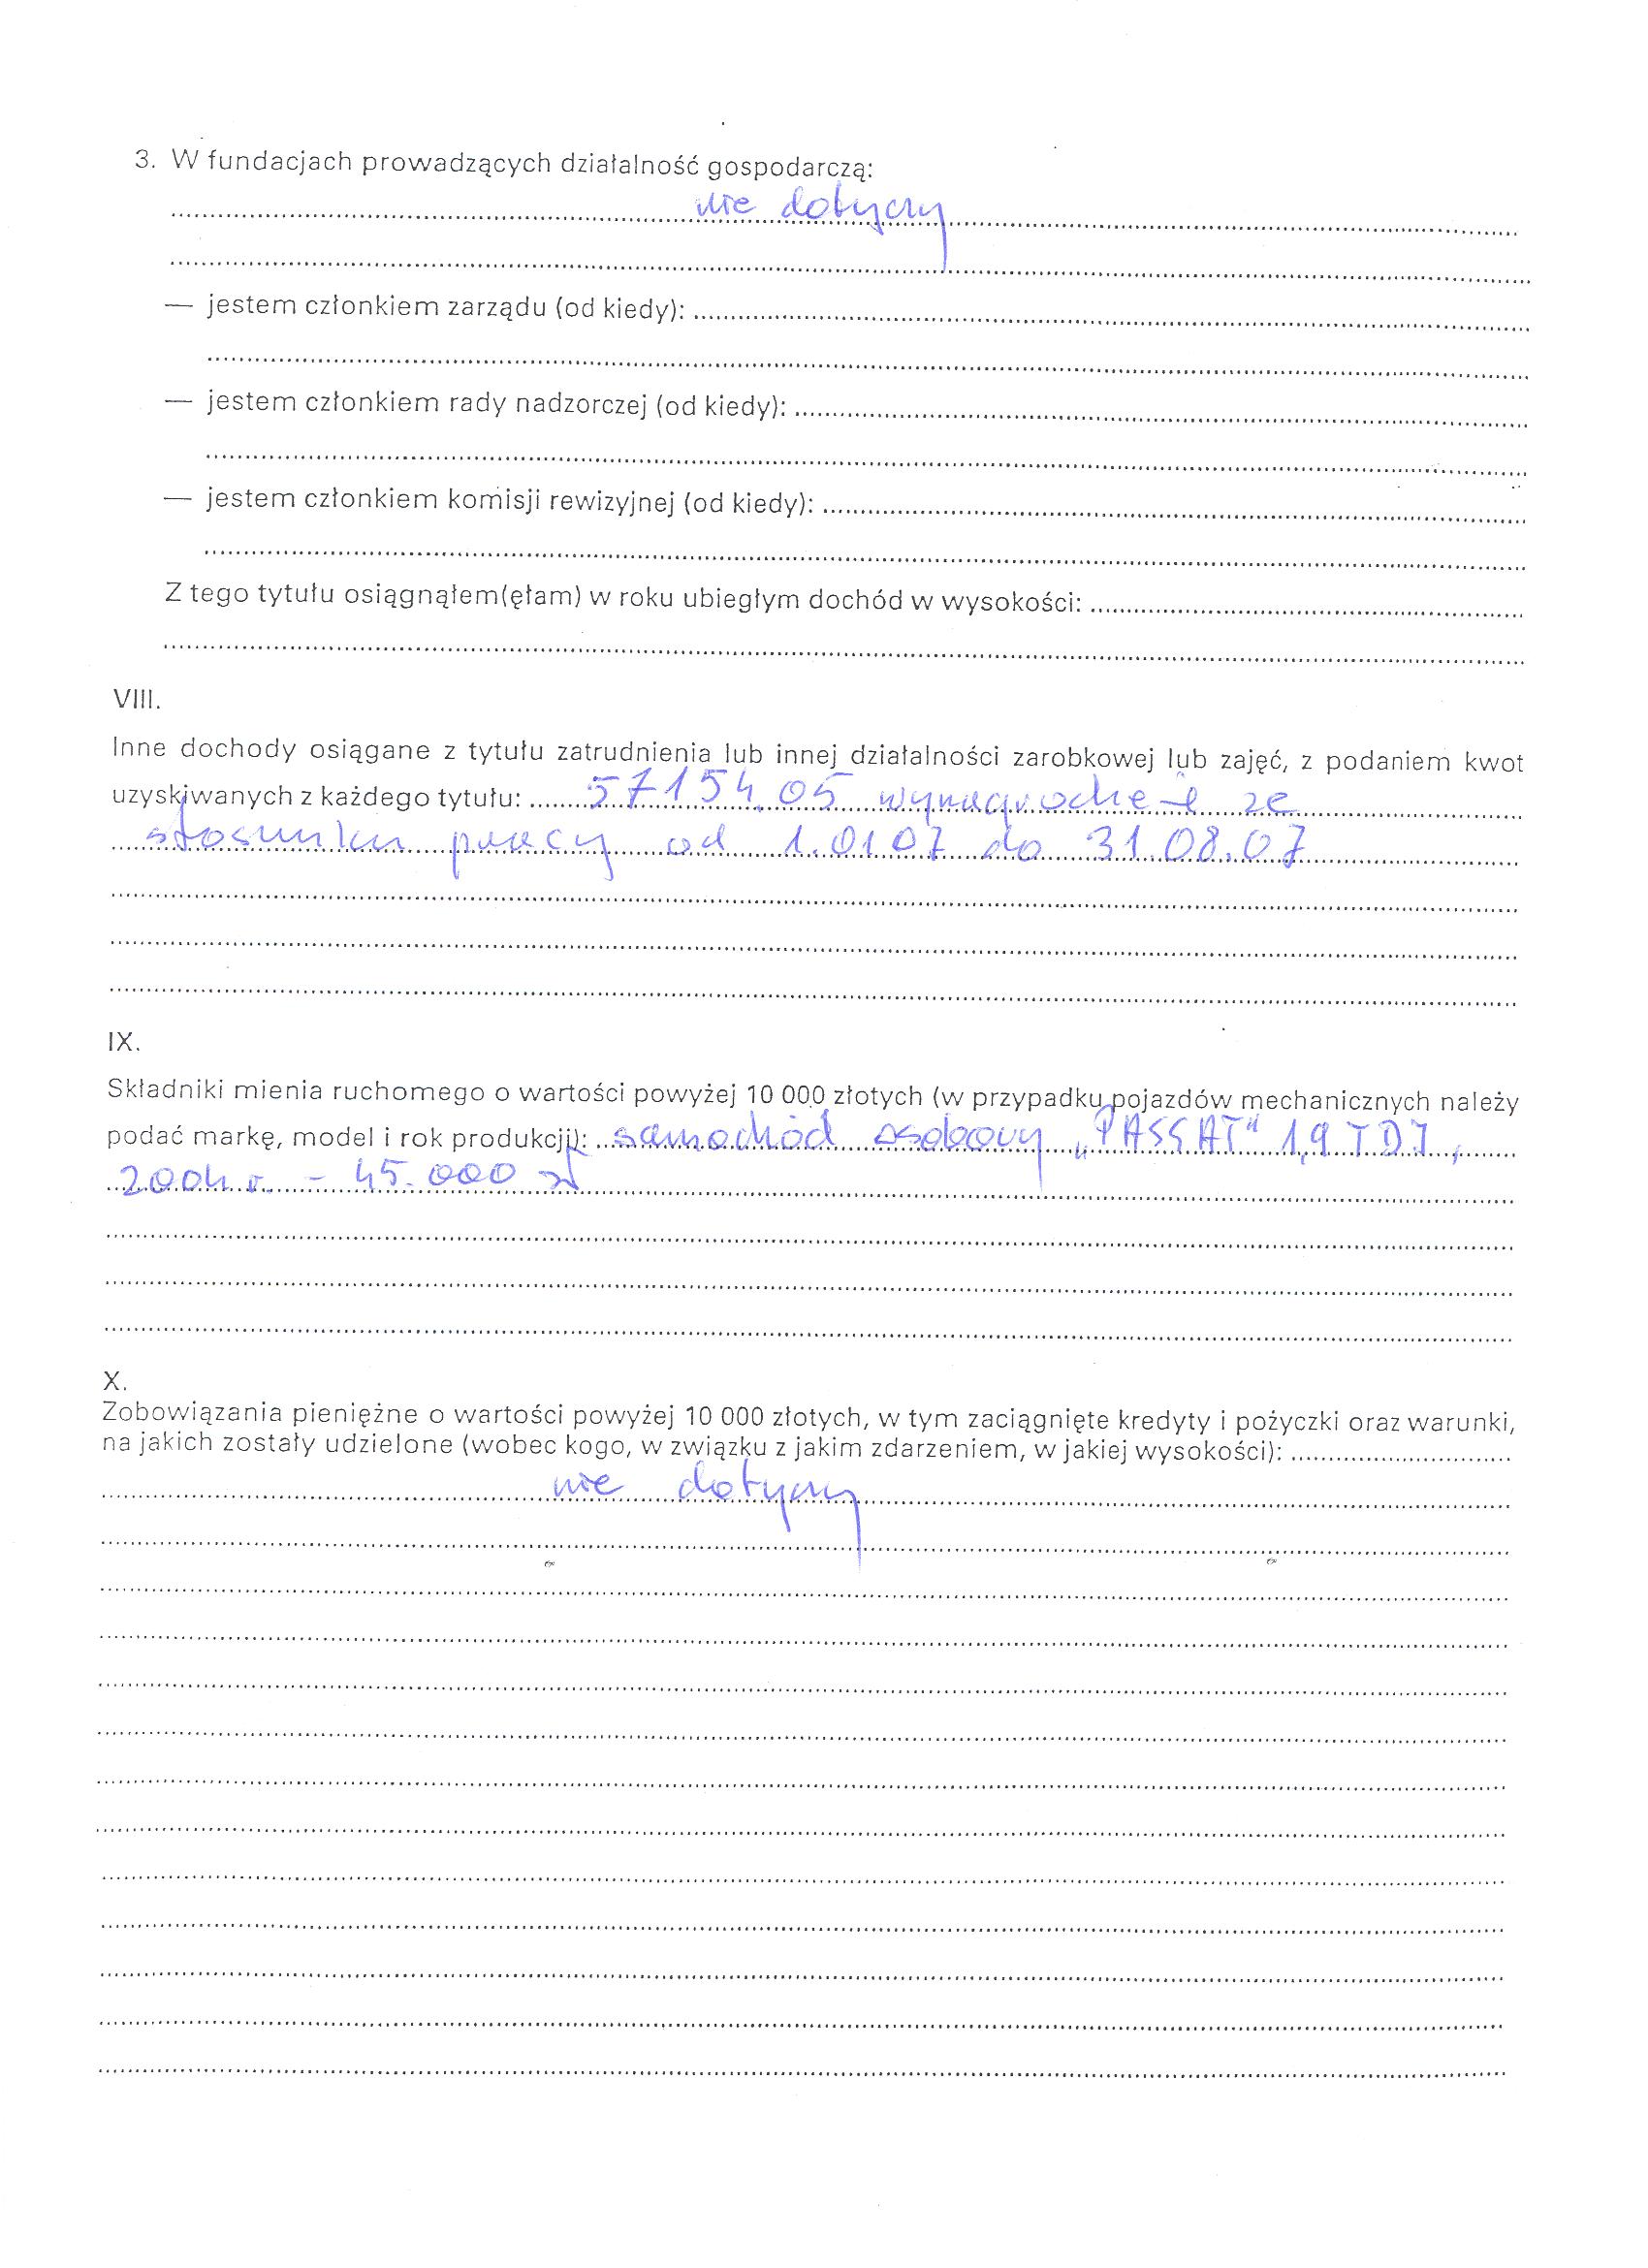 3. W fundacjach prowadzących działalność gospodarczą:
nie dotyczy
— jestem członkiem zarządu (od kiedy):
— jestem członkiem rady nadzorczej (od kiedy):
— jestem członkiem komisji rewizyjnej (od kiedy):
Z tego tytułu osiągnąłem(ęłam) w roku ubiegłym dochód w wysokości:
VIII.
Inne dochody osiągane z tytułu zatrudnienia lub innej działalności zarobkowej lub zajęć, z podaniem kwot
uzyskiwanych z każdego tytułu: 57154,05 wynagrodze-e ze
stosunku pracy od 1.01 07 do 31.08.07
IX.
Składniki mienia ruchomego o wartości powyżej 10 000 złotych (w przypadku pojazdów mechanicznych należy
podać markę, model i rok produkcji): samochód osobowy „PASSAT" 1,9 TDI,
2004 r. - 45.000 zł
X.
Zobowiązania pieniężne o wartości powyżej 10 000 złotych, w tym zaciągnięte kredyty i pożyczki oraz warunki,
na jakich zostały udzielone (wobec kogo, w związku z jakim zdarzeniem, w jakiej wysokości):
nie dotyczy